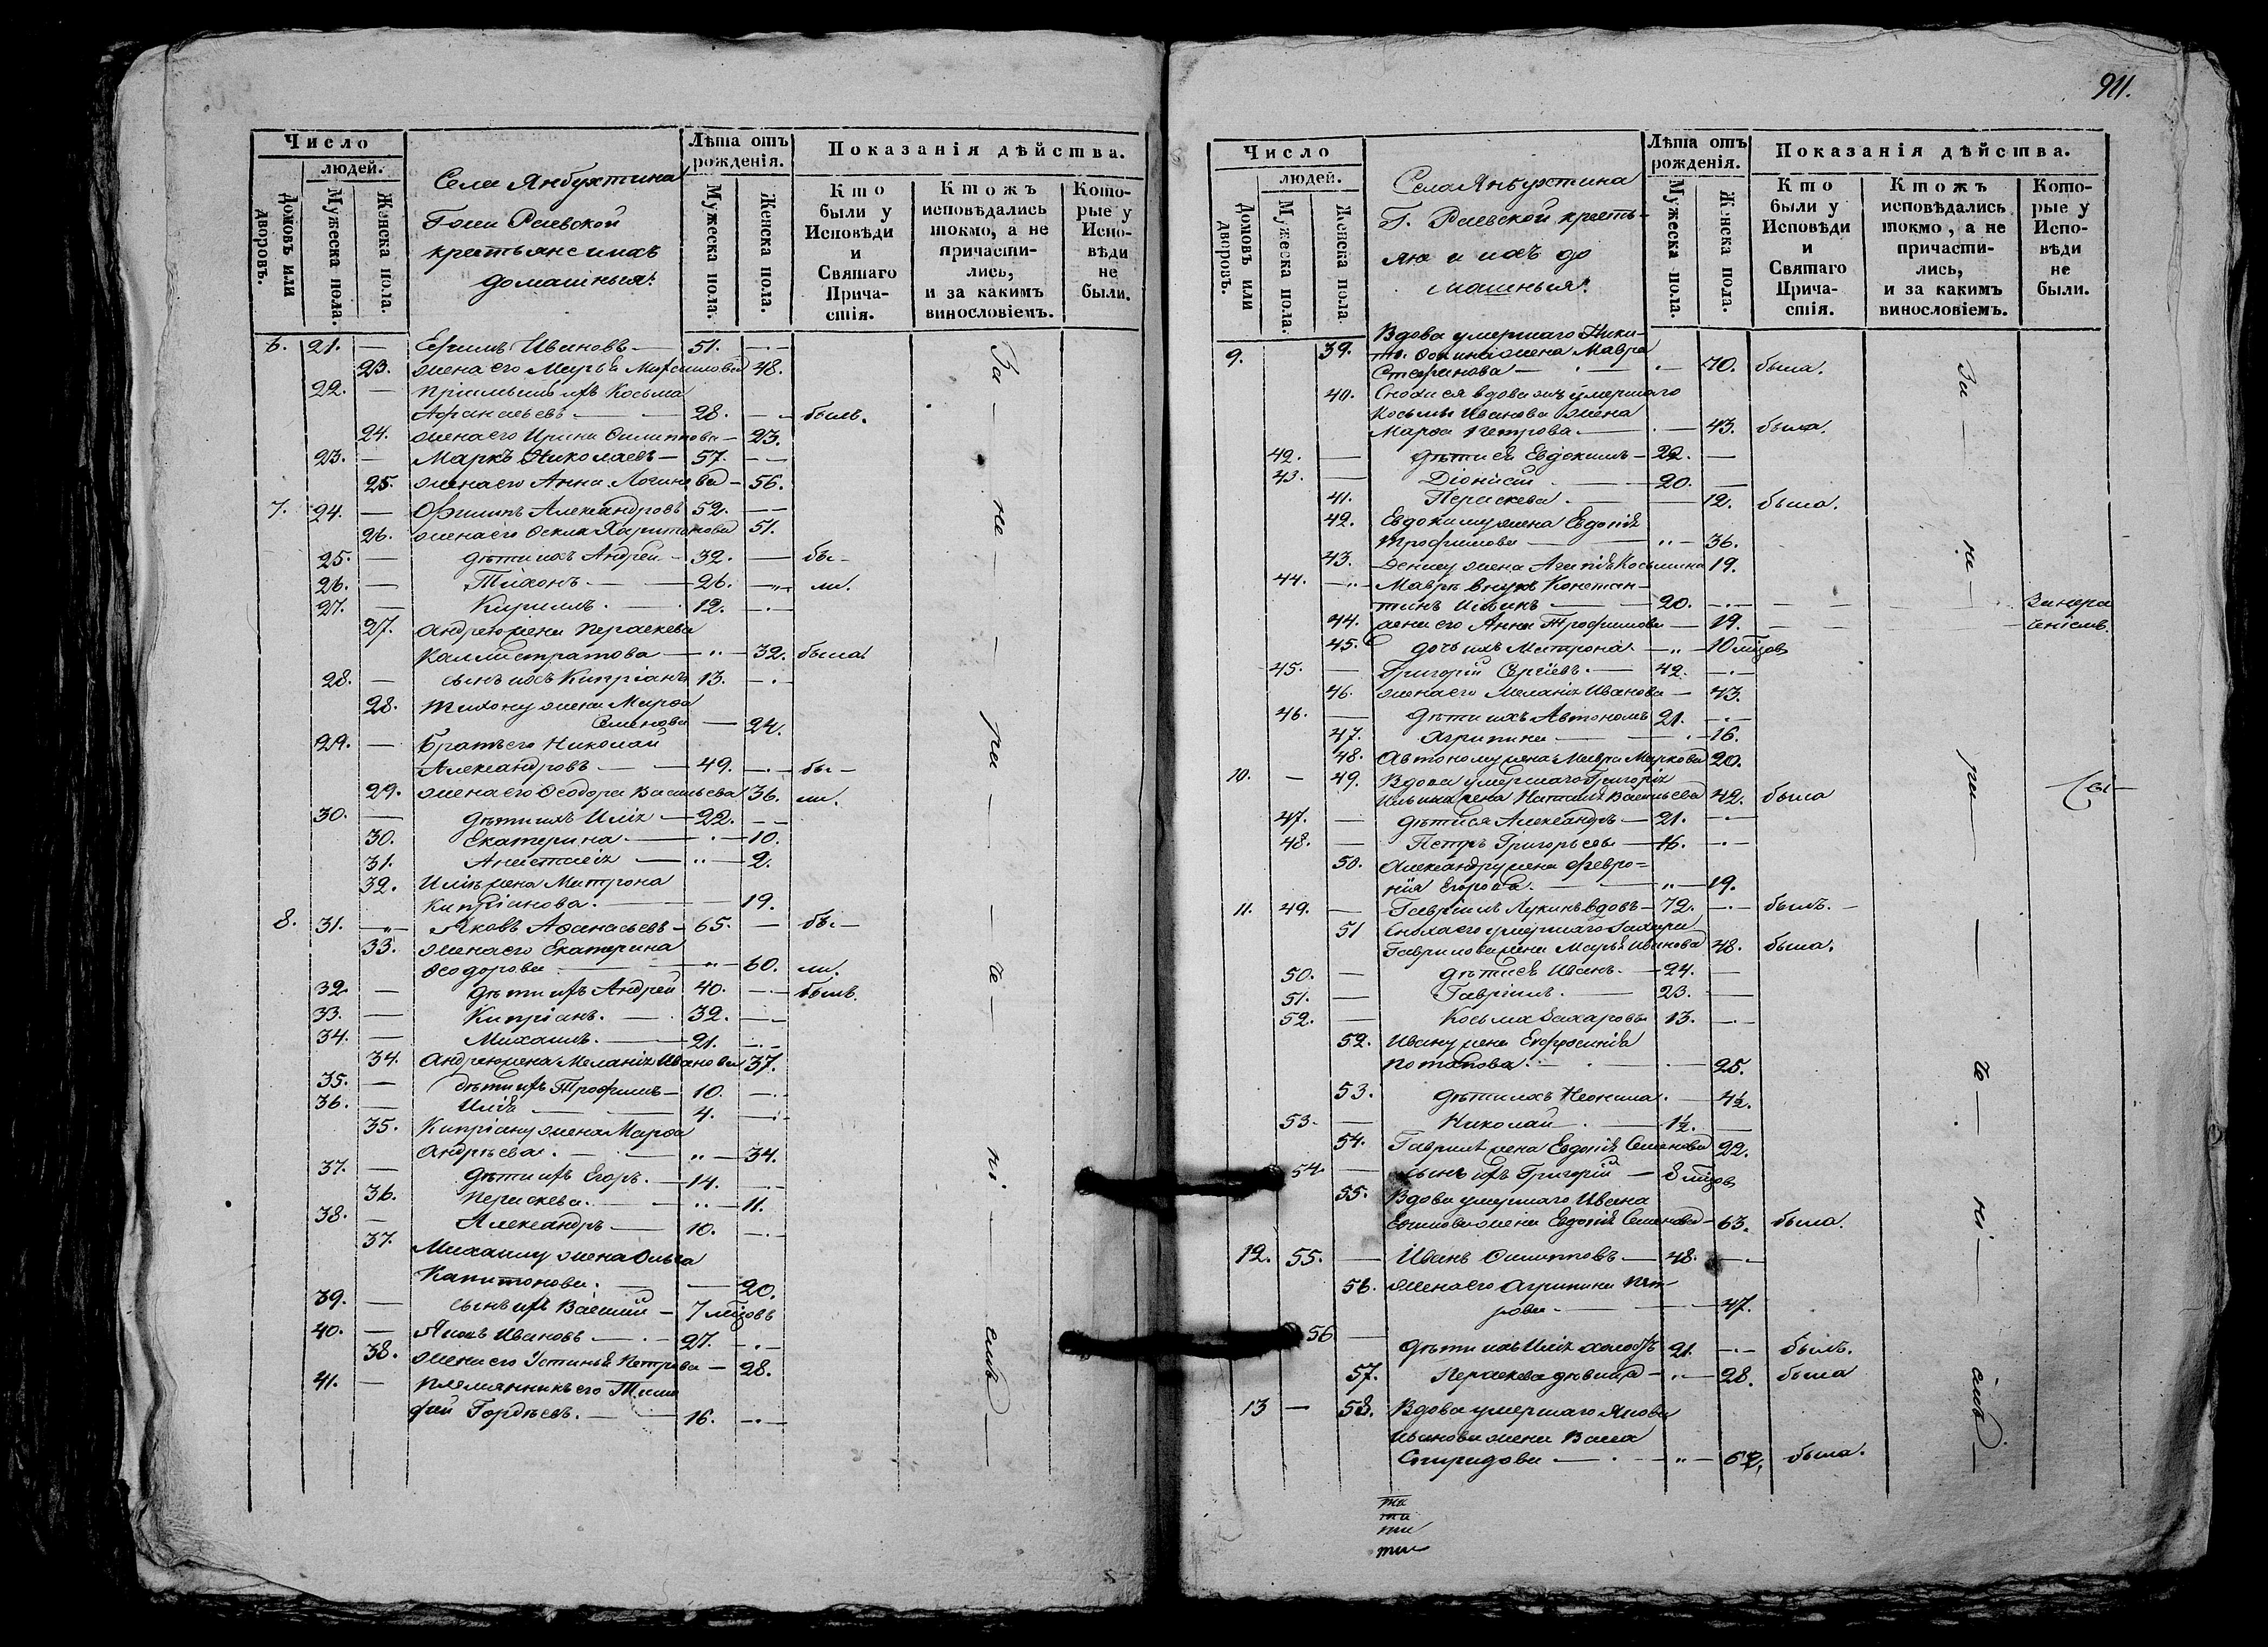 Число
людей.
Домовъ или дворовъ.
Мужеска пола.
Женска пола.
Села Янбухтина
Гожи Раевской
крестьяне и ихъ
домашныя:
Лѣта отъ
рожденія.
Мужеска пола.
Женска пола.
Показанія дѣйства.
Кто
были у
Исповѣди
и
Святаго
Прича-
стія.
Ктожъ
исповѣдались
токмо, а не
причасти-
лись,
и за какимъ
винословіемъ.
Кото-
рые у
Испо-
вѣди
не
были.
6. 21. — Ефимъ Ивановъ — 51.
23. жена его Марья 48.
22. — Косьма
Афанасьевъ — 28. — былъ.
24. жена его Ирина Филиппова — 23.
23. — Маркъ Николаевъ — 57. —
25. жена его Анна Логинова — 56.
7. 24. — Филипъ Александровъ 52. —
26. жена его Харитонова 51.
25. — дѣти ихъ Андрей — 32. — бы-
26. — Тихонъ — 26. — ли.
27. — Кирилъ. — 12. —
27. Андрею жена Параскева
Каллистратова — 32. была
28. — сынъ ихъ Кипріанъ 13. —
28. Тихону жена Марфа
Семенова — 24.
29. — Братъ его Николай
Александровъ — 49. — бы-
29. жена его Ѳеодора Васильева 36. ли.
30. — дѣти ихъ Илія — 22. —
30. Екатерина — 10.
31. Анастасія — 2.
32. Иліѣ жена Матрона
Кипріанова. — 19.
8. 31. — Яковъ Афанасьевъ — 65. — бы-
33. жена его Екатерина
Ѳеодорова — 60. ли.
32. — дѣти ихъ Андрей 40. — былъ.
33. — Кипріанъ. — 32. —
34. — Михаилъ. — 21. —
34. Андрею жена Меланія Иванова 37.
35. — дѣти ихъ Трофимъ — 10. —
36. — Илія — 4. —
35. Кипріану жена Марфа
Андрѣева. — 34.
37. — дѣти ихъ Егоръ. — 14. —
36. Параскева. — 11.
38. — Александръ — 10. —
37. Михаилу жена Ольга
Капитонова. — 20.
39. — сынъ ихъ Василій — 7 мѣцовъ
40. — Яковъ Ивановъ — 27. —
38. жена его Устинья Петрова — 28.
41. — племянникъ его Тимо
фей Гордѣевъ. — 16. —
За — не — ра — че — ні — емъ —
911.
Число
людей.
Домовъ или дворовъ.
Мужеска пола.
Женска пола
Села Янбухтина
Г. Раевской кресть-
яне и ихъ до
машныя:
Лѣта отъ
рожденія.
Мужеска пола.
Женска пола.
Показанія дѣйства.
Кто
были у
Исповѣди
и
Святаго
Прича-
стія.
Ктожъ
исповѣдались
токмо, а не
причасти-
лись,
и за какимъ
винословіемъ.
Кото-
рые у
Испо-
вѣди
не
были.
9. 39. Вдова умершаго Ники-
жена Мавра
Стефанова — 70. была.
40. Сноха ея вдова умершаго
Косьмы Иванова жена
Марфа Петрова. — 43. была.
42. — дѣти ея Евдокимъ — 22. —
43. — Діонисій — 20. —
41. Параскева. — 12. была.
42. Евдокиму жена Евдокія
Трофимова — 36.
43. Денису жена Агапія Косьмина 19.
44. — Мавры внукъ Констан-
тинъ — 20. — За нера
44. жена его Анна Трофимова — 19. — ченіемъ.
45. дочь ихъ Матрона. — 10 мѣцов
45. — Григорій Сергѣевъ. — 42. —
46. жена его Меланія Иванова — 43.
46. — дѣти ихъ Автономъ 21. —
47. Агрипина — 16.
48. Автоному жена Мавра Маркова 20.
10. — 49. Вдова умершаго Григорія
Ильина жена Наталія Васильева 42. была
47. — дѣти ея Александръ — 21. —
48. — Петръ Григорьевы — 16. —
50. Александру жена Февро-
нія Егорова. — 19.
11. 49. — Гавріилъ Лукинъ вдовъ — 72. — былъ. —
51 Сноха его умершаго Захара
Гаврилова жена Марья Иванова 48. была.
50. — дѣти ея Иванъ — 24. —
51. — Гавріилъ. — 23. —
52. — Косьма Захаровы 13. —
52. Ивану жена Евфросинія
Потапова. — 25.
53. дѣти ихъ Неонила. — 4½.
53. — Николай — 1½. —
54. Гаврилѣ жена Евдокія Семенова 22.
54. — сынъ ихъ Григорій — 8 мѣцов
55. Вдова умершаго Ивана
жена Евдокія Семенова — 63. была.
12. 55. — Иванъ Филипповъ — 48. —
56. жена его Агрипина Пет
рова. — 47.
56 — дѣти ихъ Илія холостъ 21. — былъ.
57. Параскева дѣвица — 28. была
13 — 58. Вдова умершаго Якова
Иванова жена Васса
Спиридова — была.
За — не — ра — че — ні — емъ —